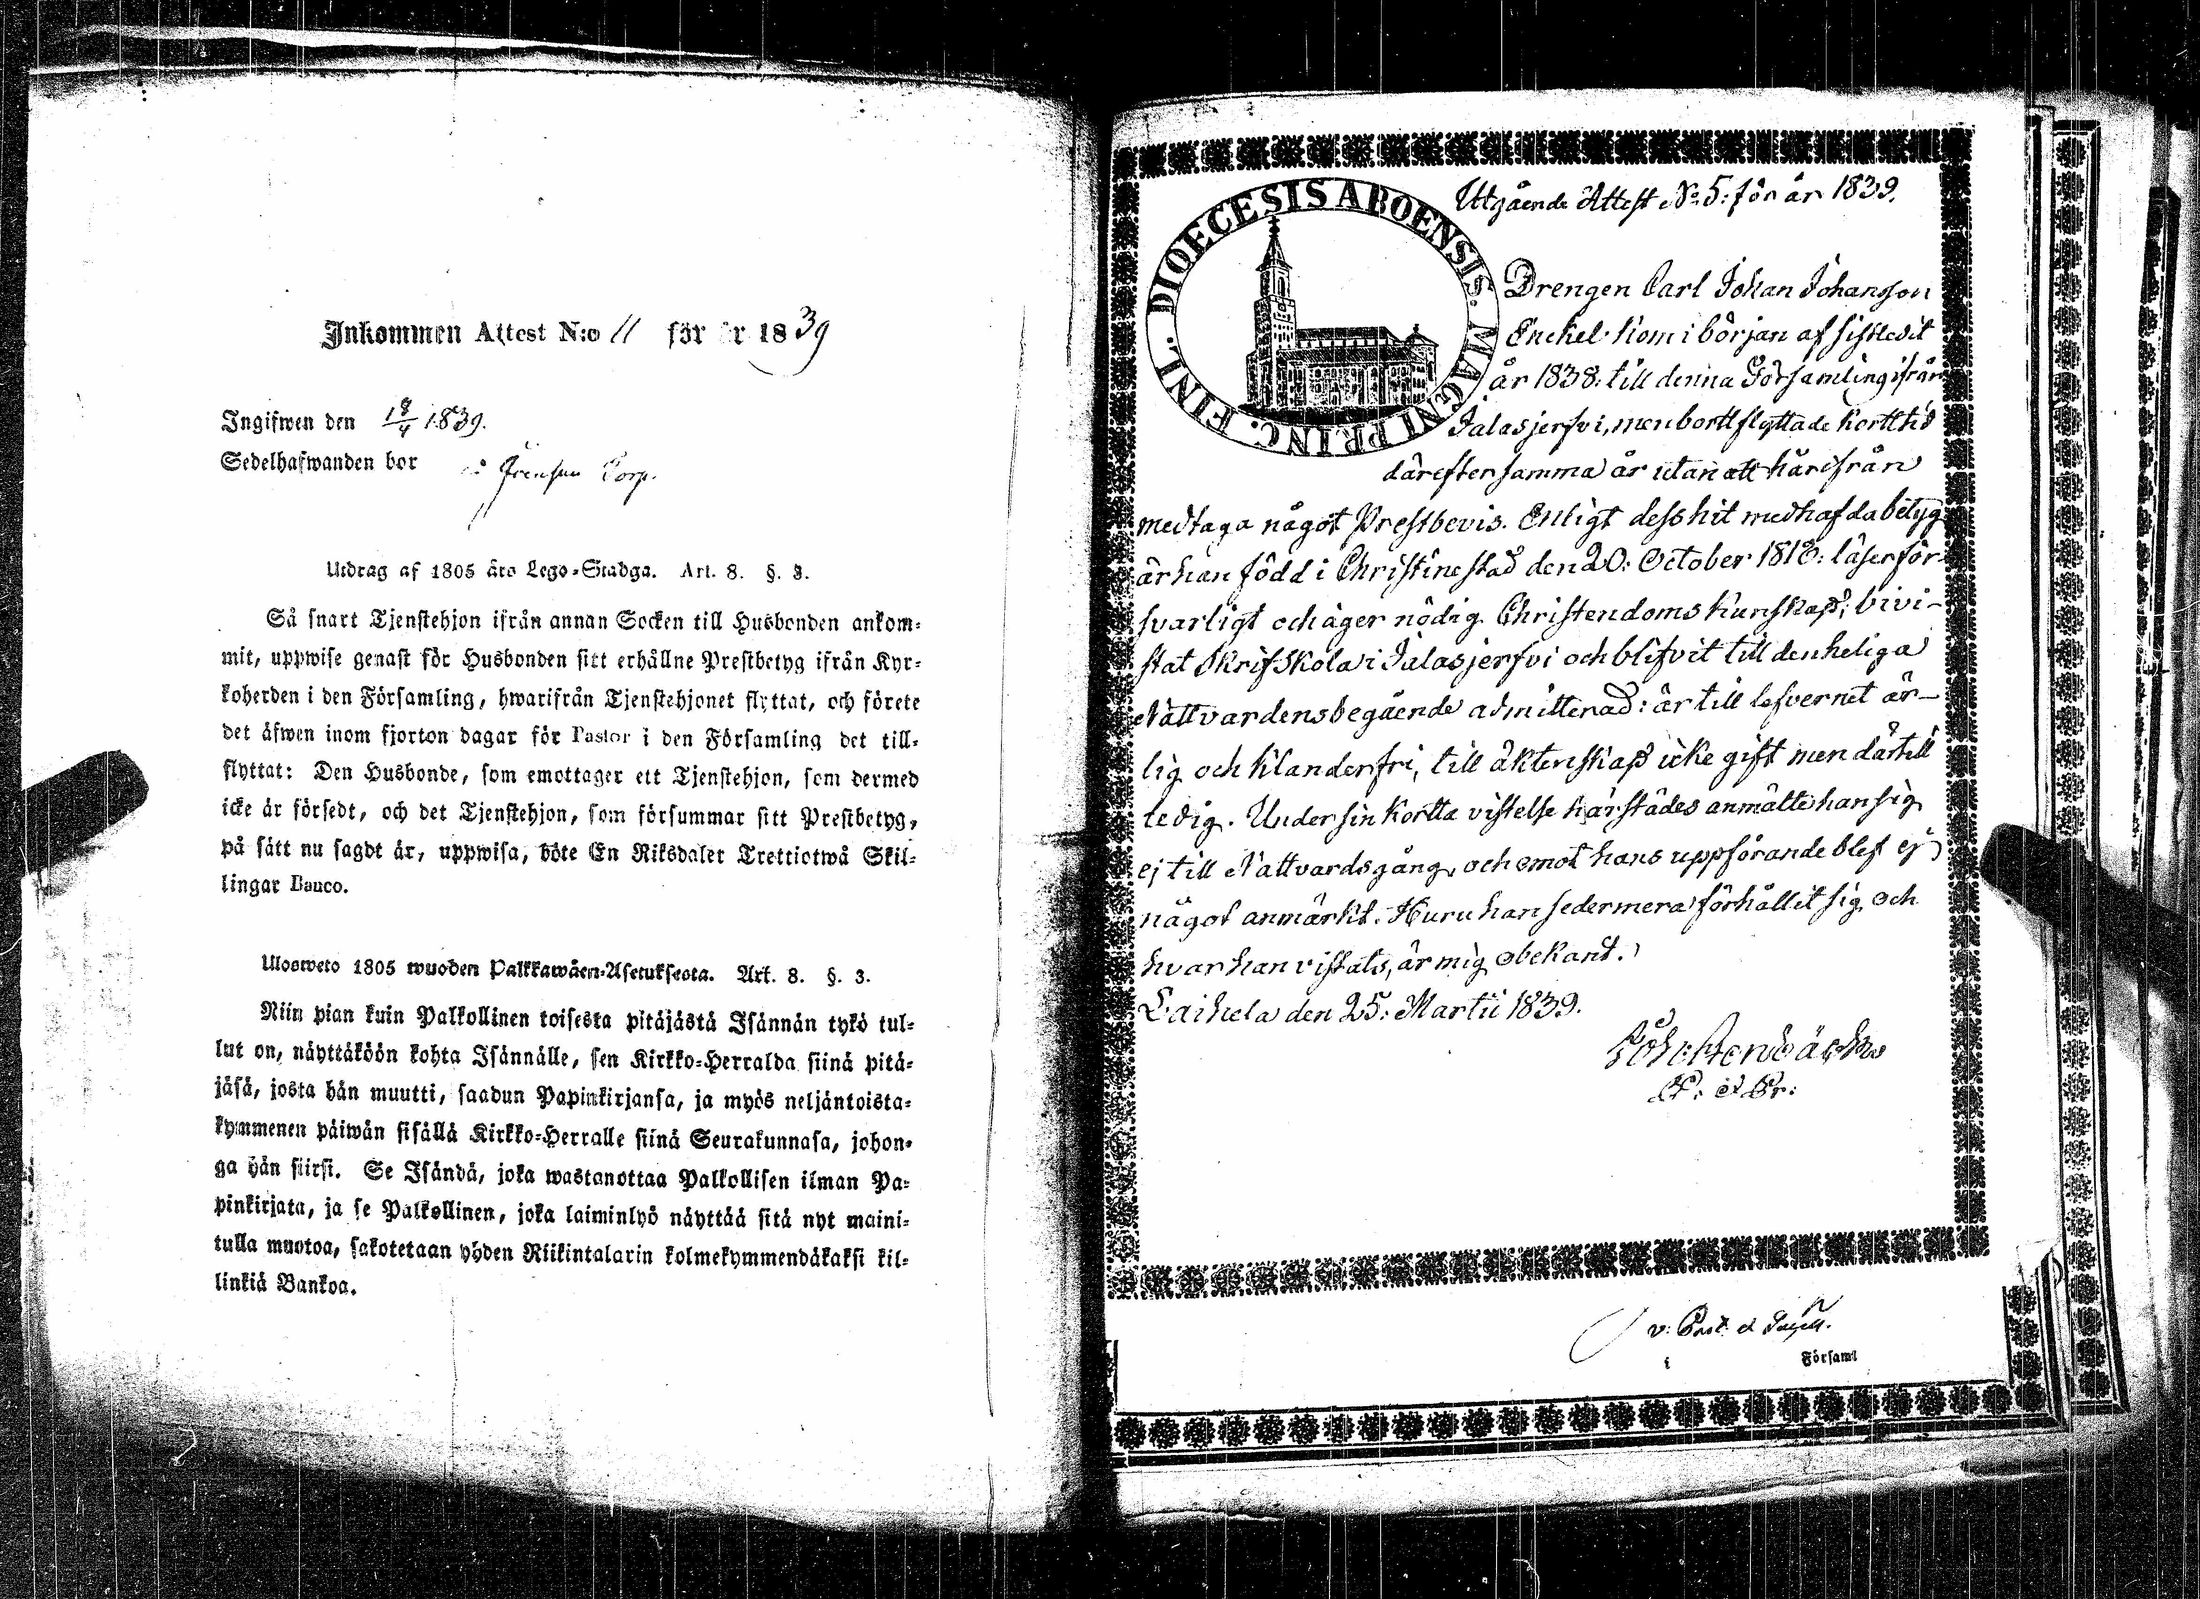 Inkommen Attest N:o 11 för år 1839
Ingifwen den 18/4 1839.
Sedelhafwanden bor
Utdrag af 1805 års Lego-Stadga. Art. 8. §. 3.
Så snart Tjenstehjon ifrån annan Socken till Husbonden ankom-
mit, uppwise genast för Husbonden sitt erhållne Prestbetyg ifrån Kyr-
koherden i den Församling, hwarifrån Tjenstehjonet flyttat, och förete
det äfwen inom fjorton dagar för Pastor i den Församling det till-
flyttat: Den Husbonde, som emottager ett Tjenstehjon, som dermed
icke är försedt, och det Tjenstehjon, som försummar sitt Prestbetyg,
på sätt nu sagdt är, uppwisa, böte En Riksdaler Trettiotwå Skil-
lingar Banco.
Ulosweto 1805 wuoden Palkkawäen-Asetuksesta. Art. 8. §. 3.
Niin pian kuin Palkollinen toisesta pitäjästä Isännän tykö tul-
lut on, näyttäköön kohta Isännälle, sen Kirkko-Herralda siinä pitä-
jäsä, josta hän muutti, saadun Papinkirjansa, ja myös neljäntoista-
kymmenen päiwän sisällä Kirkko-Herralle siinä Seurakunnasa, johon-
ga hän siirsi. Se Isändä, joka wastanottaa Palkollisen ilman Pa-
pinkirjata, ja se Palkollinen, joka laiminlyö näyttää sitä nyt maini-
tulla muotoa, sakotetaan yhden Riikintalarin kolmekymmendäkaksi kil-
linkiä Bankoa.
DIOECESIS ABOENSIS. MAGNI PRINC. FINL.
Utgående Attest No 5: för år 1839.
Drengen Carl Johan Johansson
Enckel kom i början af sistledit
år 1838: till denna Församling ifrån
Jalasjerfvi, men bortflyttade kort tid
därefter samma år utan att härifrån
medtaga något Prestbevis. Enligt dess hit medhafda betyg
är han född i Christinestad den 20: October 1818: läser för-
svarligt och äger nödig Christendoms kunskap, bivi-
stat Skriftskola i Jalasjerfvi och blifvit till den heliga
Nattvardens begående admitterad: är till lefvernet är-
lig och klanderfri, till äktenskap icke gift men därtill
ledig. Under sin korta vistelse härstädes anmälte han sig
ej till Nattvardsgång, och emot hans uppförande blef ej
något anmärkt. Huru han sedermera förhållit sig och
hvar han vistats, är mig obekant.
Laihela den 25: Martii 1839.
P: et Pr:
i Församl